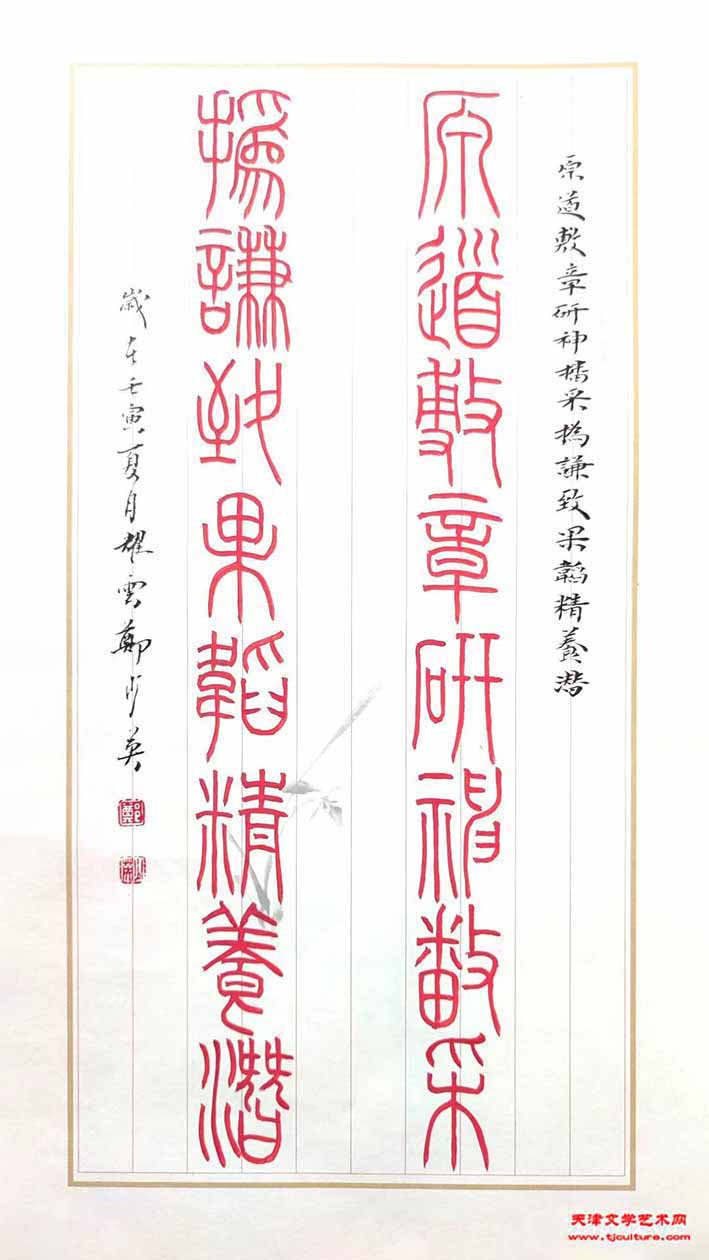 原道敷章研神播采撝謙致果韜精養潛
原道敷章研神播采
撝謙致果韜精養潛
歲在壬寅夏月耀雲鄭少英
天津文学艺术网
www.tjculture.com